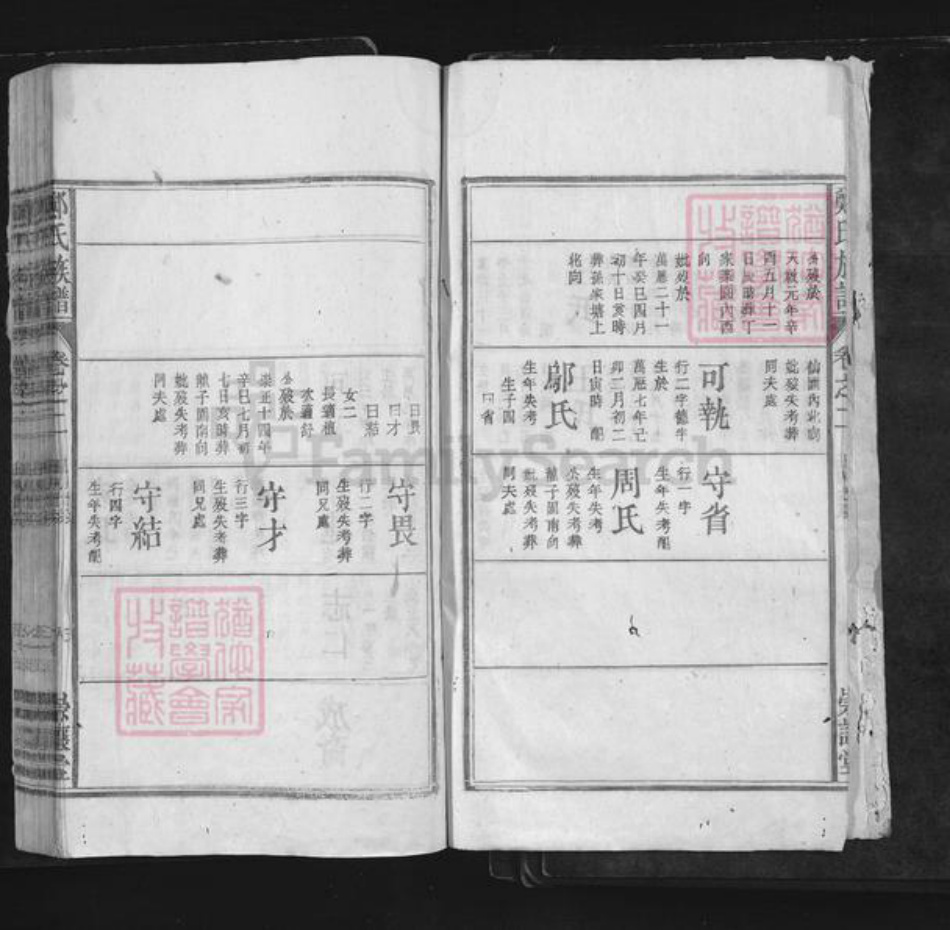 鄭氏族譜
卷之二
公歿於
天啟元年辛
酉五月十一
日
家園內酉
向
妣歿於
萬曆二十一
年癸巳四月
初十日亥時
葬孫家塘上
北向
妣歿失考葬
同夫處
可執
行二字德
生於
萬曆七年己
卯二月初二
日寅時 配
鄔氏
生年失考
生子四
曰省
守省
行一字
生年失考配
周氏
生年失考
公歿失考葬
子園南向
妣歿失考葬
同夫處
曰畏
曰才
曰結
女二
長適植
次適舒
公歿於
崇正十四年
辛巳七月初
七日亥時葬
子園南向
妣歿失考葬
同夫處
守畏
行二字
生歿失考葬
同兄處
守才
行三字
生歿失考葬
同兄處
守結
行四字
生年失考配
鄭氏族譜
卷之二
崇讓堂
猶他家
譜學會
收藏
猶他家
譜學會
收藏
FamilySearch